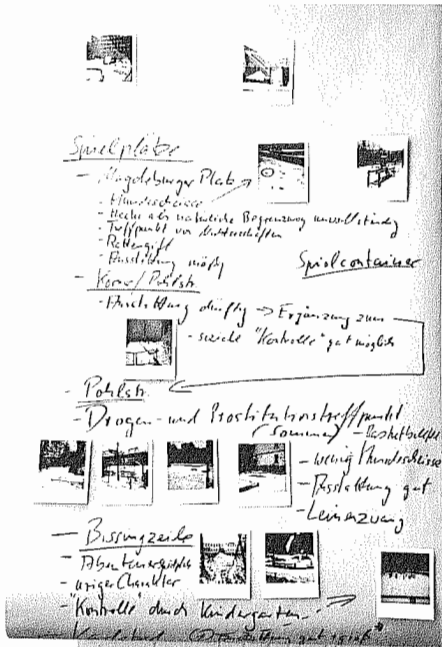 Spielplätze
- Magdeburger Platz
- Hundescheisse
- Hecke als natürliche Begrenzung unvollständig
- Treffpunkt von
- Rattengift
- Ausstattung mäßig
Spielcontainer
- Körner/Pohlstr.
- Einrichtung dürftig → Ergänzung zum
- soziale "Kontrolle" gut möglich
- Pohlstr.
- Drogen- und Prostitutionstreffpunkt
(Sommer)
- wenig Hundescheisse
- Ausstattung gut
- Leinenzwang
- Bissingzeile
- Abenteuerspielplatz
- uriger Charakter
- "Kontrolle" durch Kindergarten